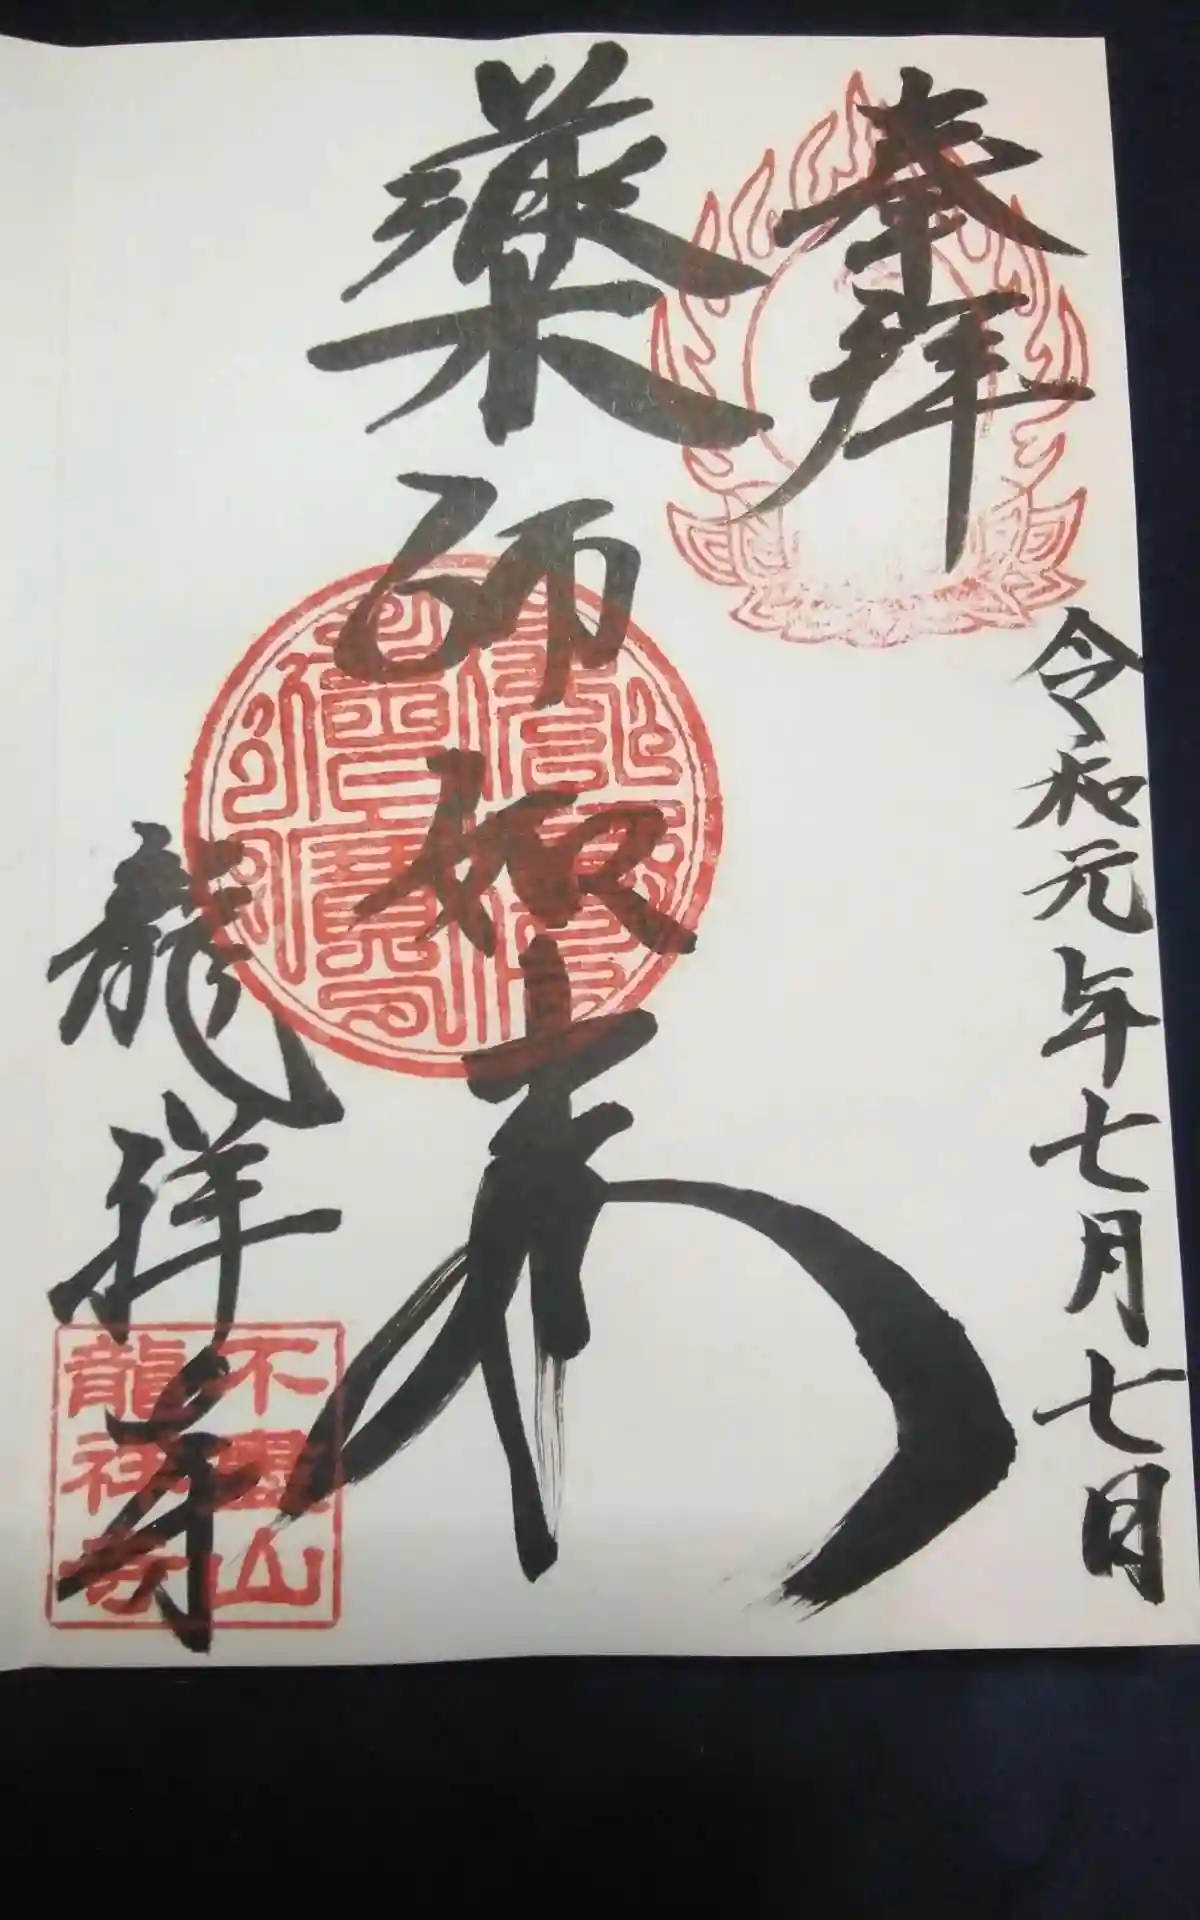 奉拝
令和元年七月七日
薬師如来
龍祥寺
佛法僧寳
不靈山
龍祥寺